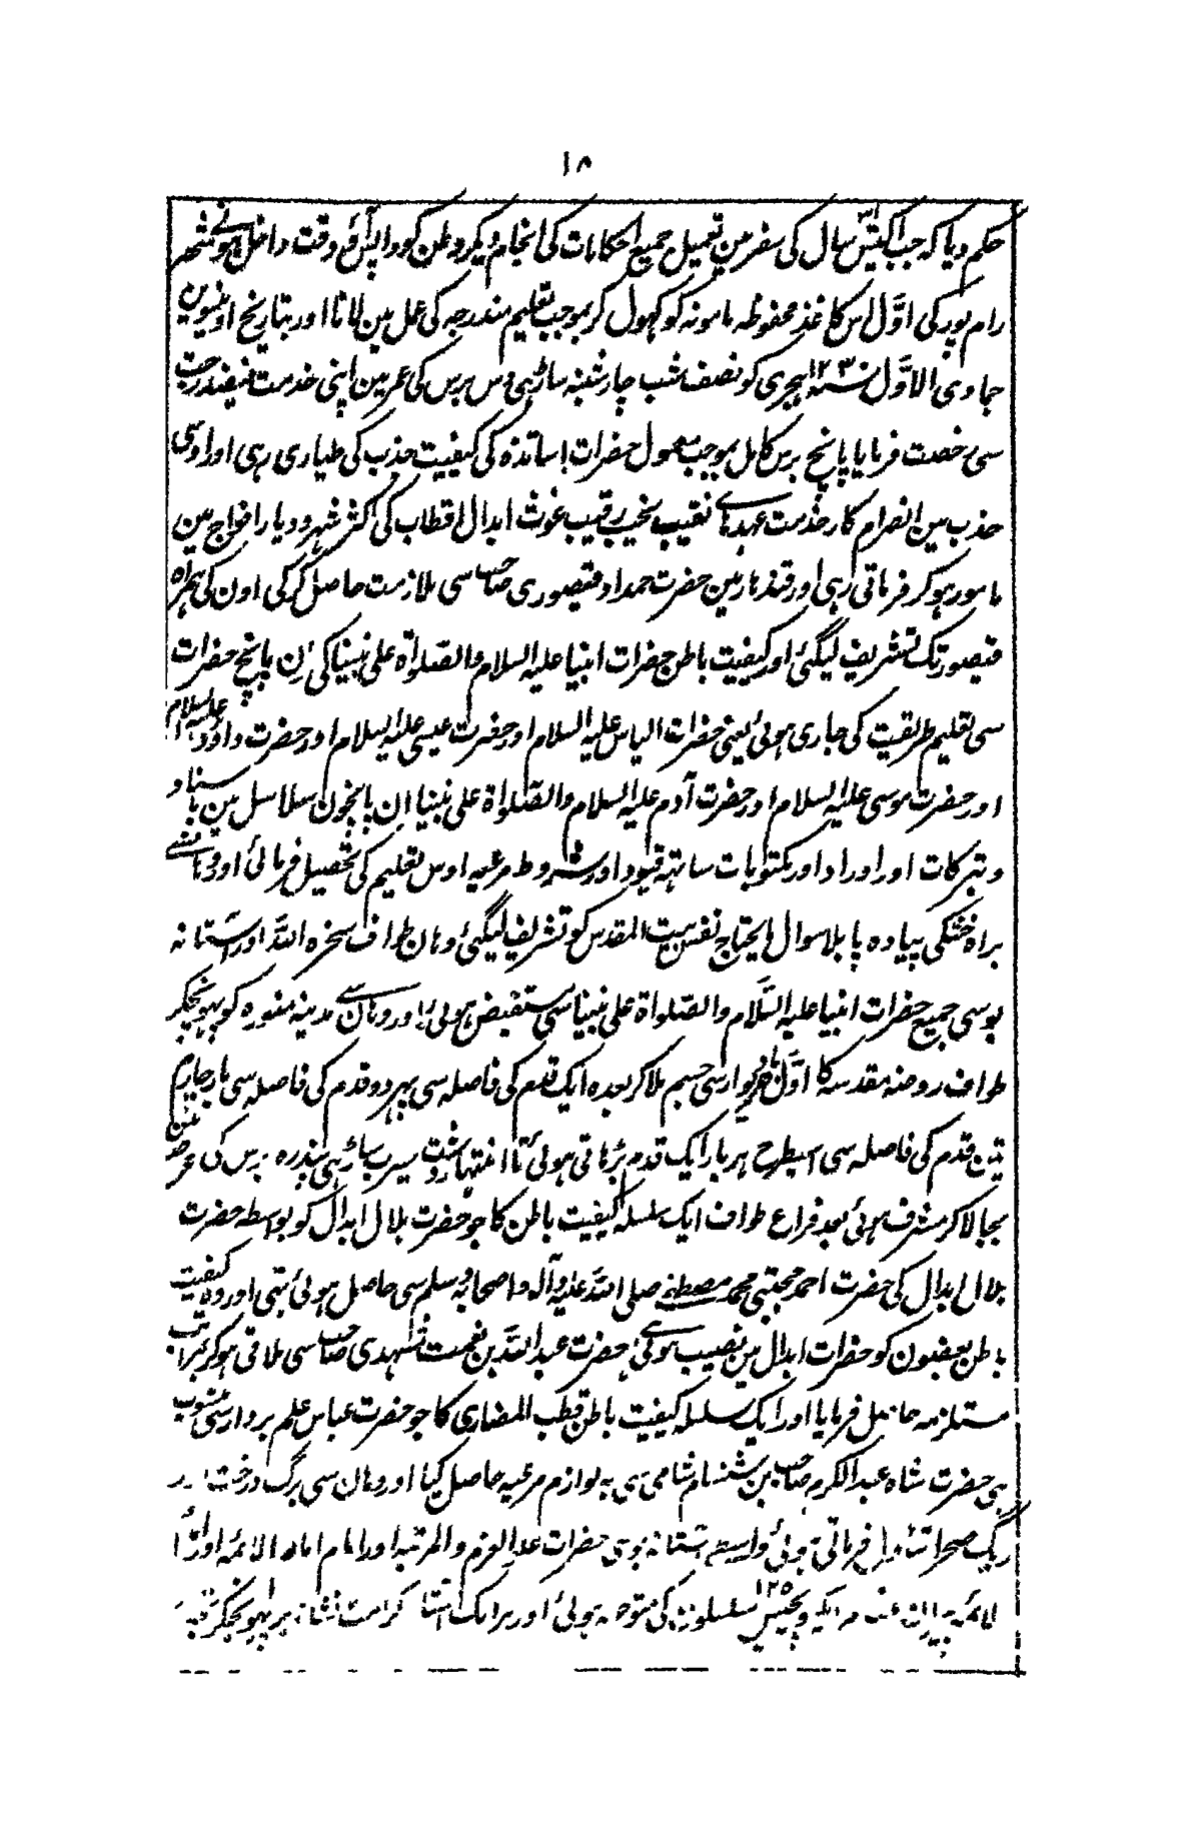 ۱۸
حکم دیا کہ جب اکتیس سال کی سفر مین تعمیل جمیع احکامات کی انجام دیکر وطن کو واپس آئی وقت داخل ہونے شہر
رام پور کی اوّل اس کاغذ محفوظہ مامونہ کو کہول کر بموجب تعلیم مندرجہ کی عمل مین لانا اور بتاریخ اونیسوین
جمادی الاوّل سنہ ۱۲۳۰ ہجری کو نصف شب چارشنبہ ساڑہی دس برس کی عمر مین اپنی خدمت فیضدرجت
سی رخصت فرمایا پانچ برس کامل بموجب معمول حضرات اساتذہ کی کیفیت جذب کی طیاری رہی اور اوسی
جذب مین انصرام کار خدمت عہدہای نقیب نجیب رقیب غوث ابدال اقطاب کی اکثر شہر و دیار افواج مین
مامور ہو کر فرماتی رہی اور قندہار مین حضرت حمداد قیصوری صاحب سی ملازمت حاصل کر کی اون کی ہمراہ
قیصور تک تشریف لیگئی اور کیفیت باطن حضرات انبیا علیہ السلام والصّلواۃ علی نبینا کی ان پانچ حضرات
سی تعلیم طریقیت کی جاری ہوئی یعنی حضرات الیاس علیہ السلام اور حضرت عیسی علیہ السلام اور حضرت داود علیہ السلام
اور حضرت موسی علیہ السلام اور حضرت آدم علیہ السلام والصّلواۃ علی نبینا ان پانچون سلاسل مین با سناد
و تبرکات اور اوراد اور مکتوبات ساتہہ قیود اور شروط مرعیہ اوس تعلیم کی تحصیل فرمائی اور وہانسے
براہ خشکی پیادہ پا بلا سوال مایحتاج نفس بیت المقدس کو تشریف لیگئی وہان طواف سخرہ اللہ اور آستانہ
بوسی جمیع حضرات انبیا علیہ السَّلام والصّلواۃ علی نبینا سی مستفیض ہوئی اور وہان سے مدینہ منورہ کو پہونچکر
طواف روضہ مقدسہ کا اوّل بار دیوار سی جسم ملا کر بعدہ ایک قدم کی فاصلہ سی پہر دو قدم کی فاصلہ سی بار چہارم
تین قدم کی فاصلہ سی اسیطرح ہر بار ایک قدم بڑہاتی ہوئی تا انتہا سیر ساڑہی پندرہ برس کی عمر مین
بجا لاکر مشرف ہوئی بعد فراغ طواف ایک سلسلہ کیفیت باطن کا جو حضرت بلال ابدال کو بواسطہ حضرت
بلال ابدال کی حضرت احمد مجتبی محمد مصطفے صلی اللہ علیہ وآلہ واصحابہ وسلم سی حاصل ہوئی تہی اور وہ کیفیت
باطن بعضون کو حضرات ابدال مین نصیب ہوئی حضرت عبد اللہ بن نعمت مشہدی صاحب سی ملاقی ہو کر بمراتب
مستلزمہ حاصل فرمایا اور ایک سلسلہ کیفیت باطن قطب المضاری کا جو حضرت عباس علم بردار سی منسوب
ہی حضرت شاہ عبد الکریم صاحب بن شامی سی بہ لوازم مرعیہ حاصل کیا اور وہان سی برگ درخت
ریگ صحرا تناول فرماتی ہوئی واسطے آستانہ بوسی حضرات علو العزم والمرتبہ اور امام امام الائمہ اور
لائمہ پیران ایک سو پچیس ۱۲۵ سلسلون کی متوجہ ہوئی اور ہر ایک کرامت نشانہ پر پہونچکر